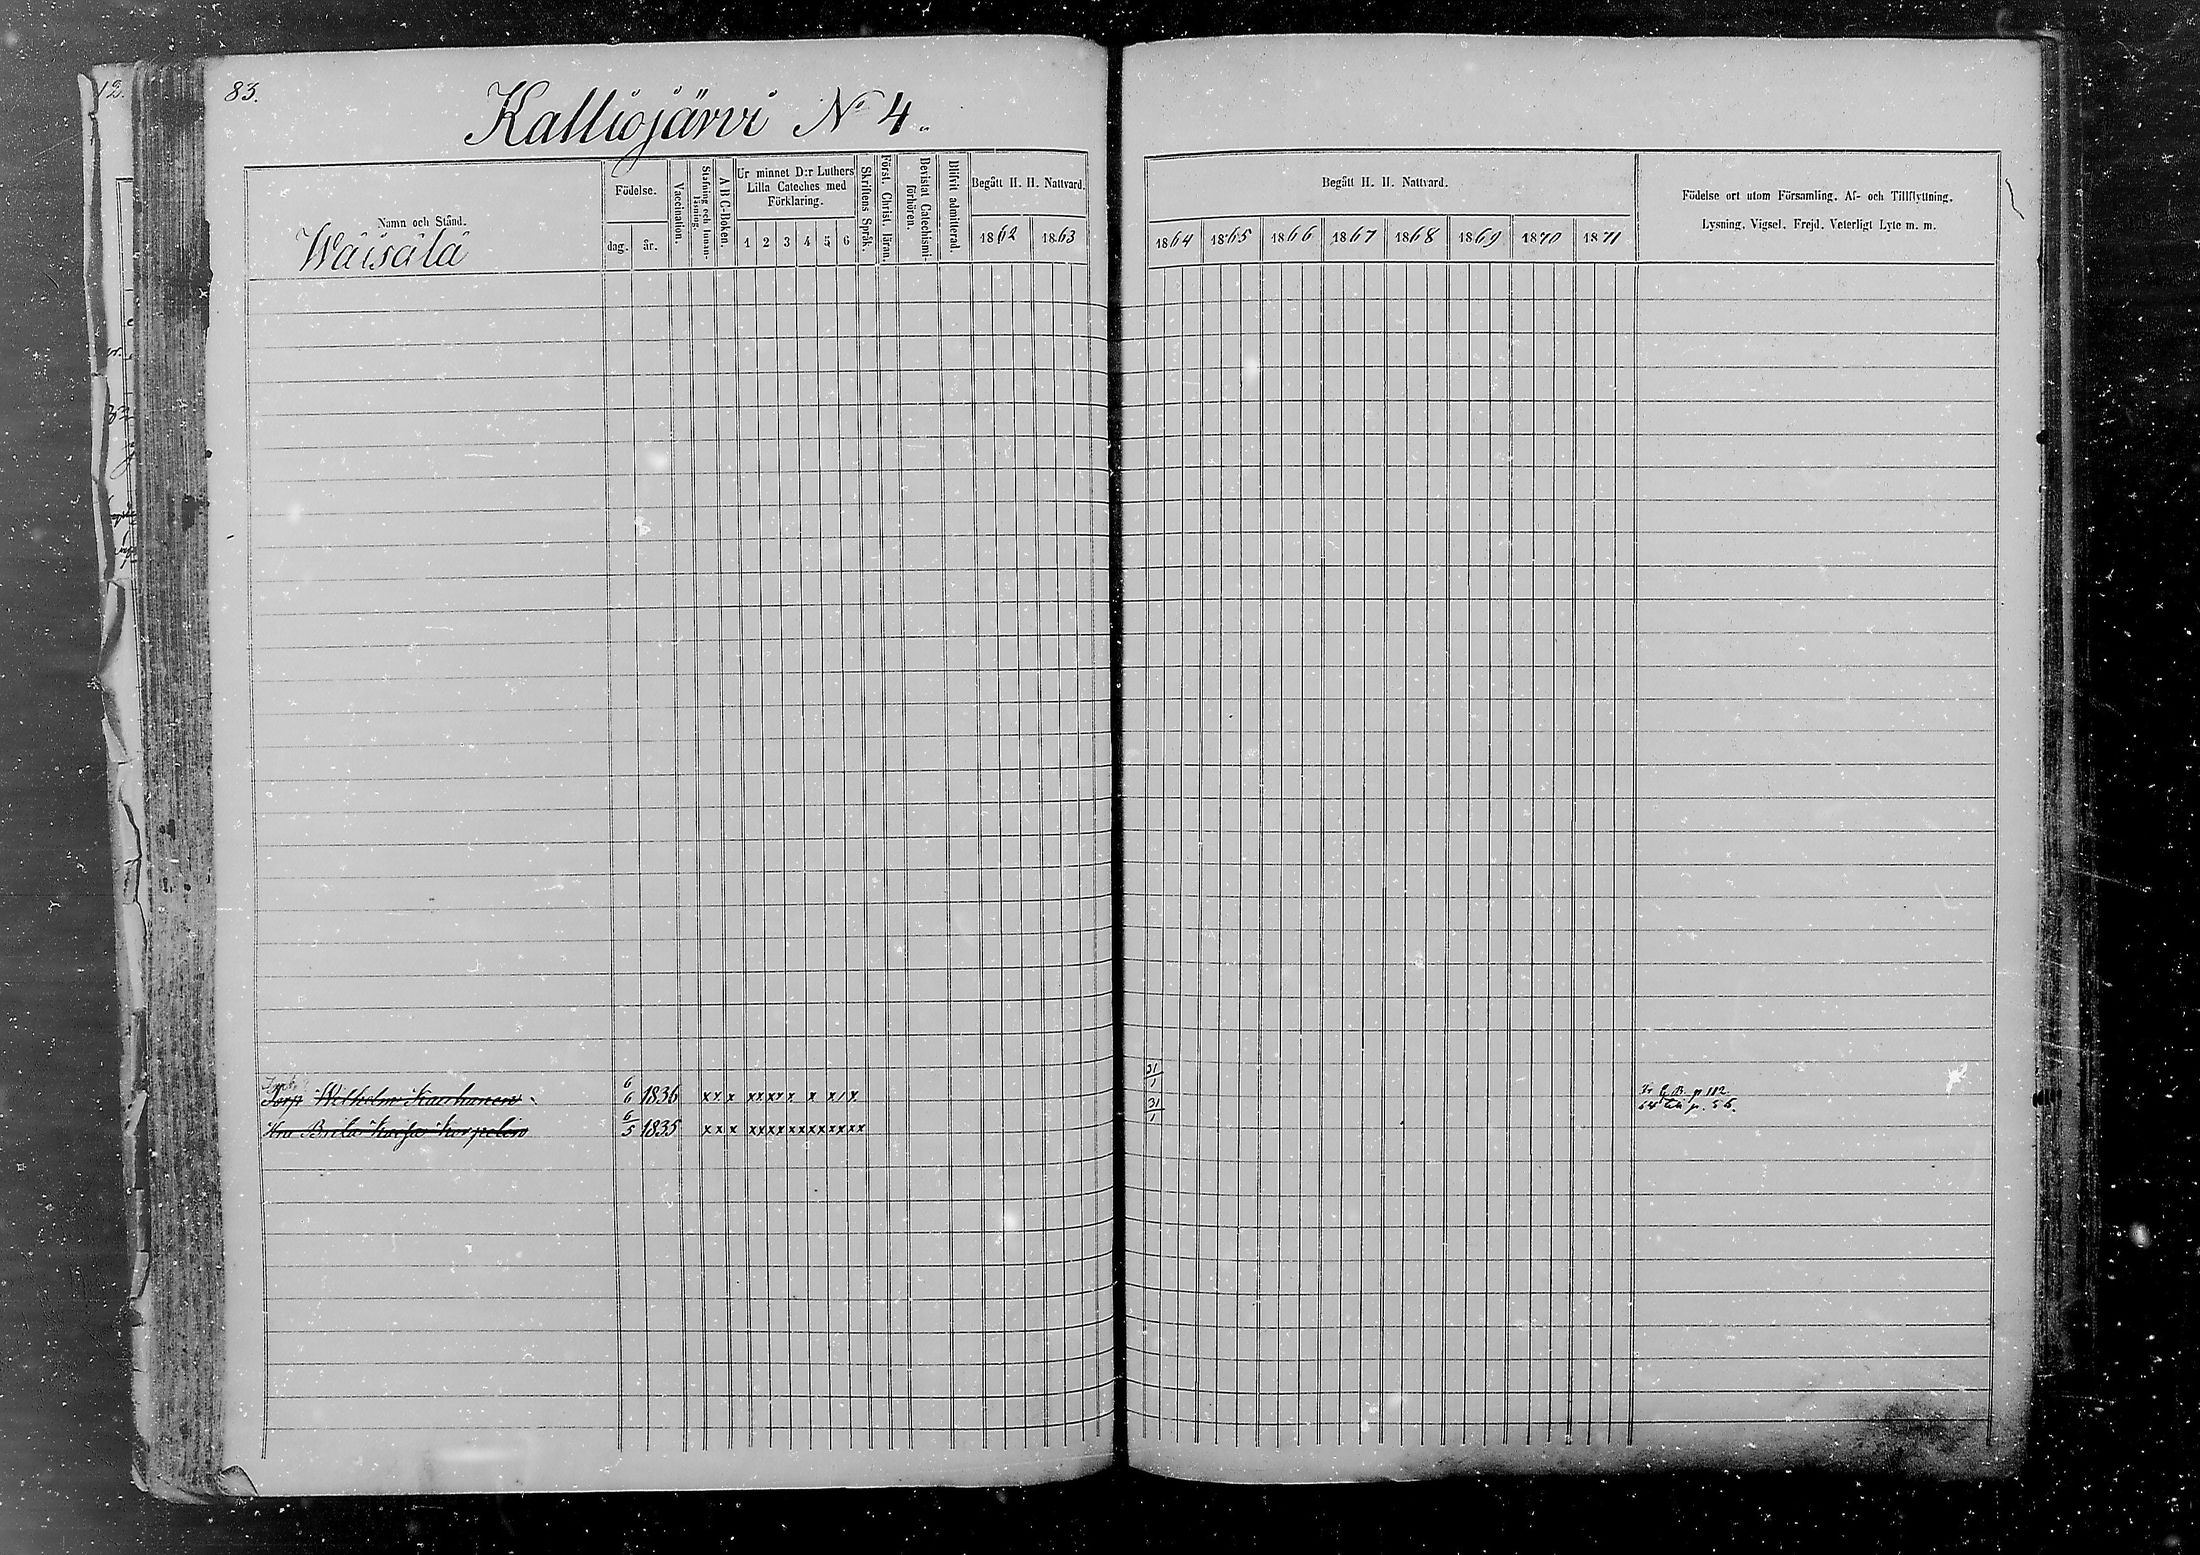 12.
83.
Kalliojärvi No 4.
Namn och Stånd.
Wäisälä
Födelse.
dag.
år.
Vaccination.
Stafning och Innan-läsning.
A B C-Boken.
Ur minnet D:r Luthers
Lilla Cateches med
Förklaring.
1 2 3 4 5 6
Skriftens Språk.
Först. Christ. läran.
Bevistat Catechismi-förhören.
Blifvit admitterad.
Begått H. H. Nattvard.
1862 1863
Begått H. H. Nattvard.
1864 1865 1866 1867 1868 1869 1870 1871
Födelse ort utom Församling. Af- och Tillflyttning.
Lysning. Vigsel. Frejd. Veterligt Lyte m. m.
Torp Wilhelm 6/6 1836 x x x x x x x x x x 31/1 p 112
Hu Brita Kaisa Korpelin 6/5 1835 x x x x x x x x x x x x x x 31/1 64 p. 56.